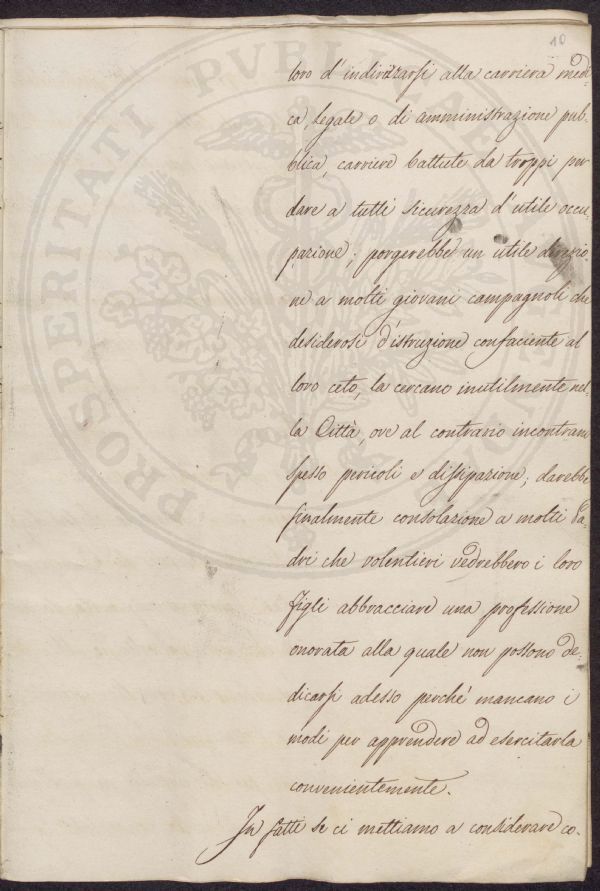 10
loro d'indirizzarsi alla carriera medi-
ca, legale o di amministrazione pub-
blica, carriere battute da troppi per
dare a tutti sicurezza d'utile occu-
pazione; porgerebbe un utile direzio
ne a molti giovani campagnoli che
desiderosi d'istruzione confaciente al
loro ceto, la cercano inutilmente nel-
la Città, ove al contrario incontrano
spesso pericoli e dissipazione; darebbe
finalmente consolazione a molti Pa-
dri che volentieri vedrebbero i loro
figli abbracciare una professione
onorata alla quale non possono de-
dicarsi adesso perché mancano i
modi per apprendere ad esercitarla
convenientemente.
In fatti se ci mettiamo a considerare co-
PROSPERITATI PUBLICAE